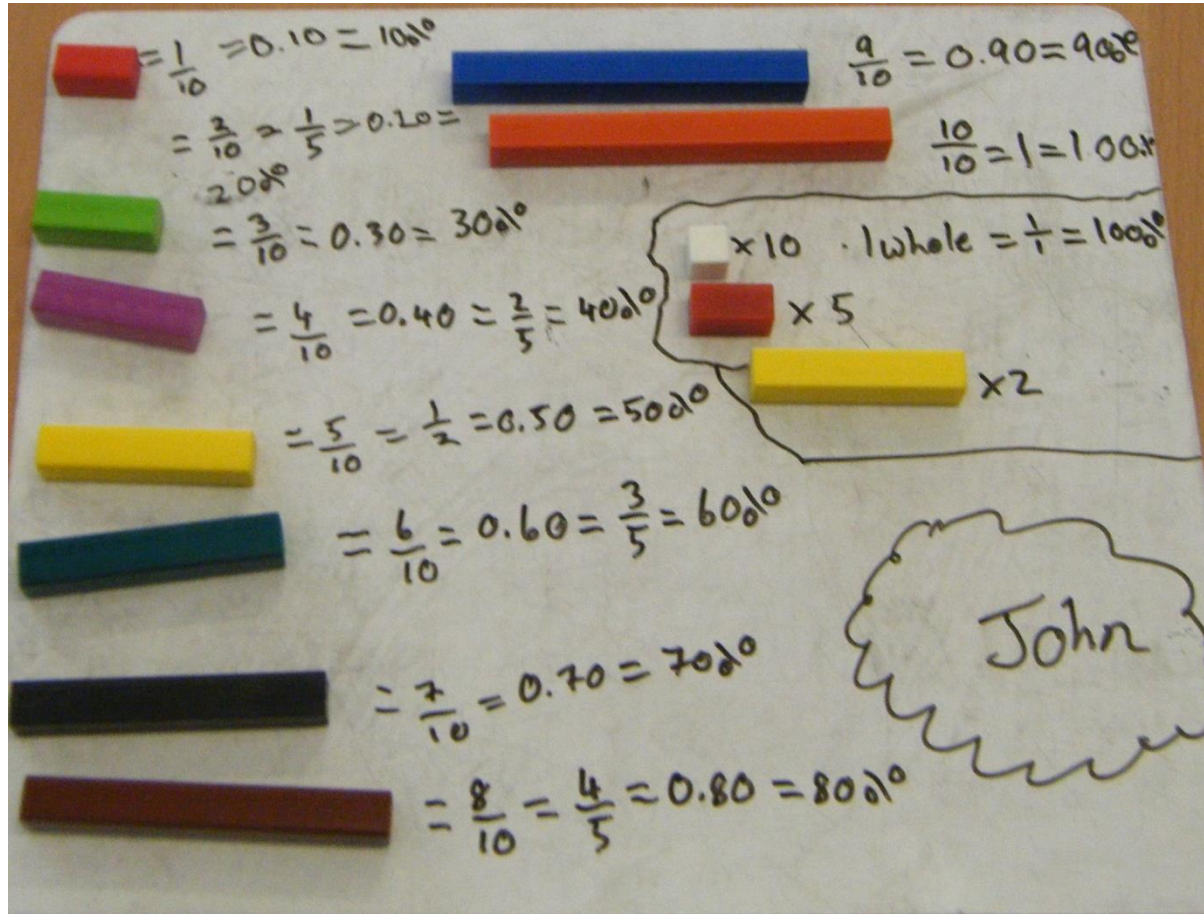 = 1/10 = 0.10 = 10%
= 2/10 = 1/5 = 0.20 =
20%
= 3/10 = 0.30 = 30%
= 4/10 = 0.40 = 2/5 = 40%
= 5/10 = 1/2 = 0.50 = 50%
= 6/10 = 0.60 = 3/5 = 60%
= 7/10 = 0.70 = 70%
= 8/10 = 4/5 = 0.80 = 80%
9/10 = 0.90 = 90%
10/10 = 1 = 100%
×10 . 1 whole = 1/1 = 100%
× 5
×2
John